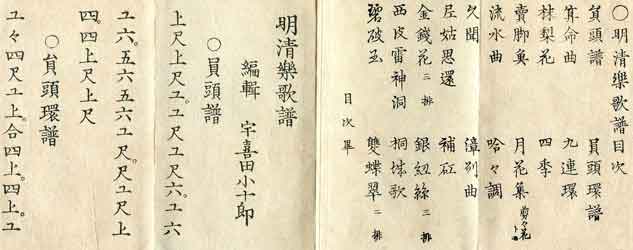 〇明清樂歌譜目次
員頭譜 員頭環譜
算命曲 九連環
抹梨花 四季
賣脚魚 月花集 剪々花ト云
流水曲 哈々調
久聞 漳別曲
尼姑思還 補矼
金錢花 三排 銀紐絲 三排
西皮雷神洞 桐城歌
碧破玉 雙蝶翠 二排
目次畢
明清樂歌譜
編輯 宇喜田小十郎
〇員頭譜
上尺上尺ユ。ユ尺ユ尺ユ六。ユ六
ユ六。五六五六ユ尺。尺ユ尺上
四。四上尺上尺
〇員頭環譜
ユ々四尺ユ上。合四上。四上。ユ